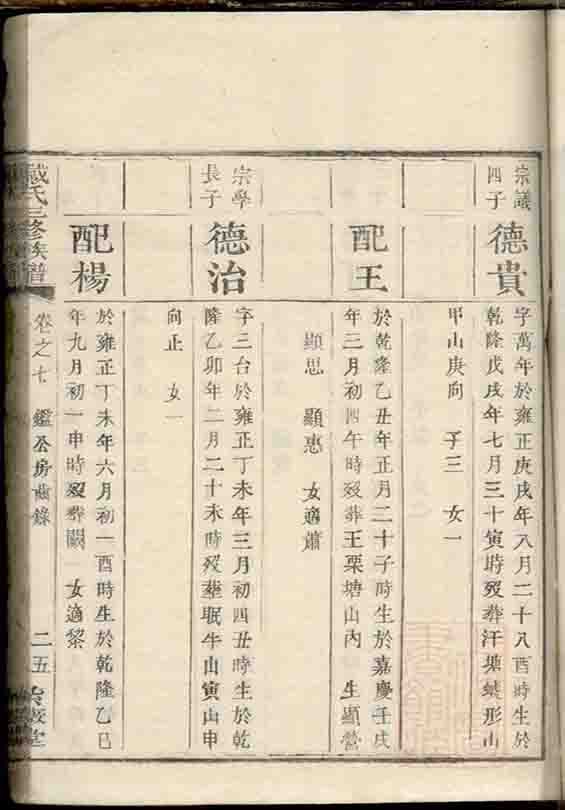 宗議
四子
德貴
字萬年於雍正庚戌年八月二十八酉時生於
乾隆戊戌年七月三十寅時歿葬汗塘螃形山
甲山庚向 子三 女一
配王
於乾隆乙丑年正月二十子時生於嘉慶壬戌
年三月初四午時歿葬王栗塘山內 生顯營
顯思 顯惠 女適蕭
宗學
長子
德治
字三台於雍正丁未年三月初四丑時生於乾
隆乙卯年二月二十未時歿葬眠牛山寅山申
向正 女一
配楊
於雍正丁未年六月初一酉時生於乾隆乙巳
年九月初一申時歿葬關 女適黎
臧氏三修族譜
卷之七 鑑公房齒錄
二五